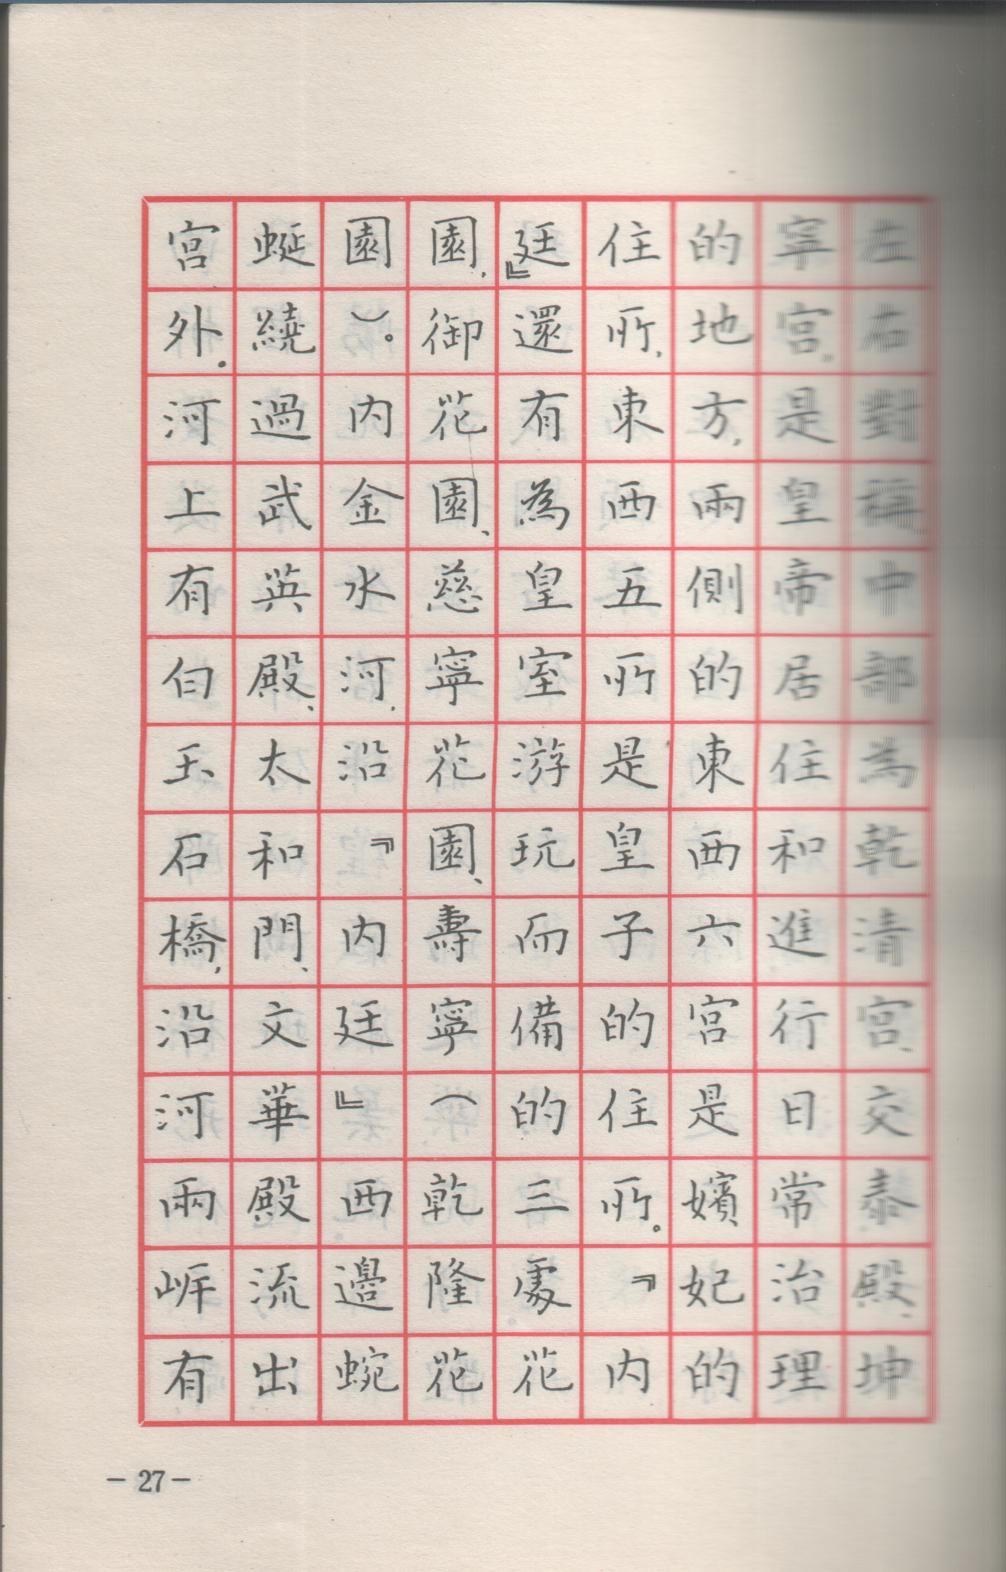 左右對稱中部為乾清宮、交泰殿、坤
寧宮，是皇帝居住和進行日常治理
的地方，兩側的東西六宮是嬪妃的
住所，東西五所是皇子的住所。『內
廷』還有為皇室游玩而備的三處花
園，御花園、慈寧花園、壽寧（乾隆花
園）。內金水河，沿『內廷』西邊蜿
蜒繞過武英殿、太和門、文華殿流出
宮外。河上有白玉石橋，沿河兩岸有
-27-